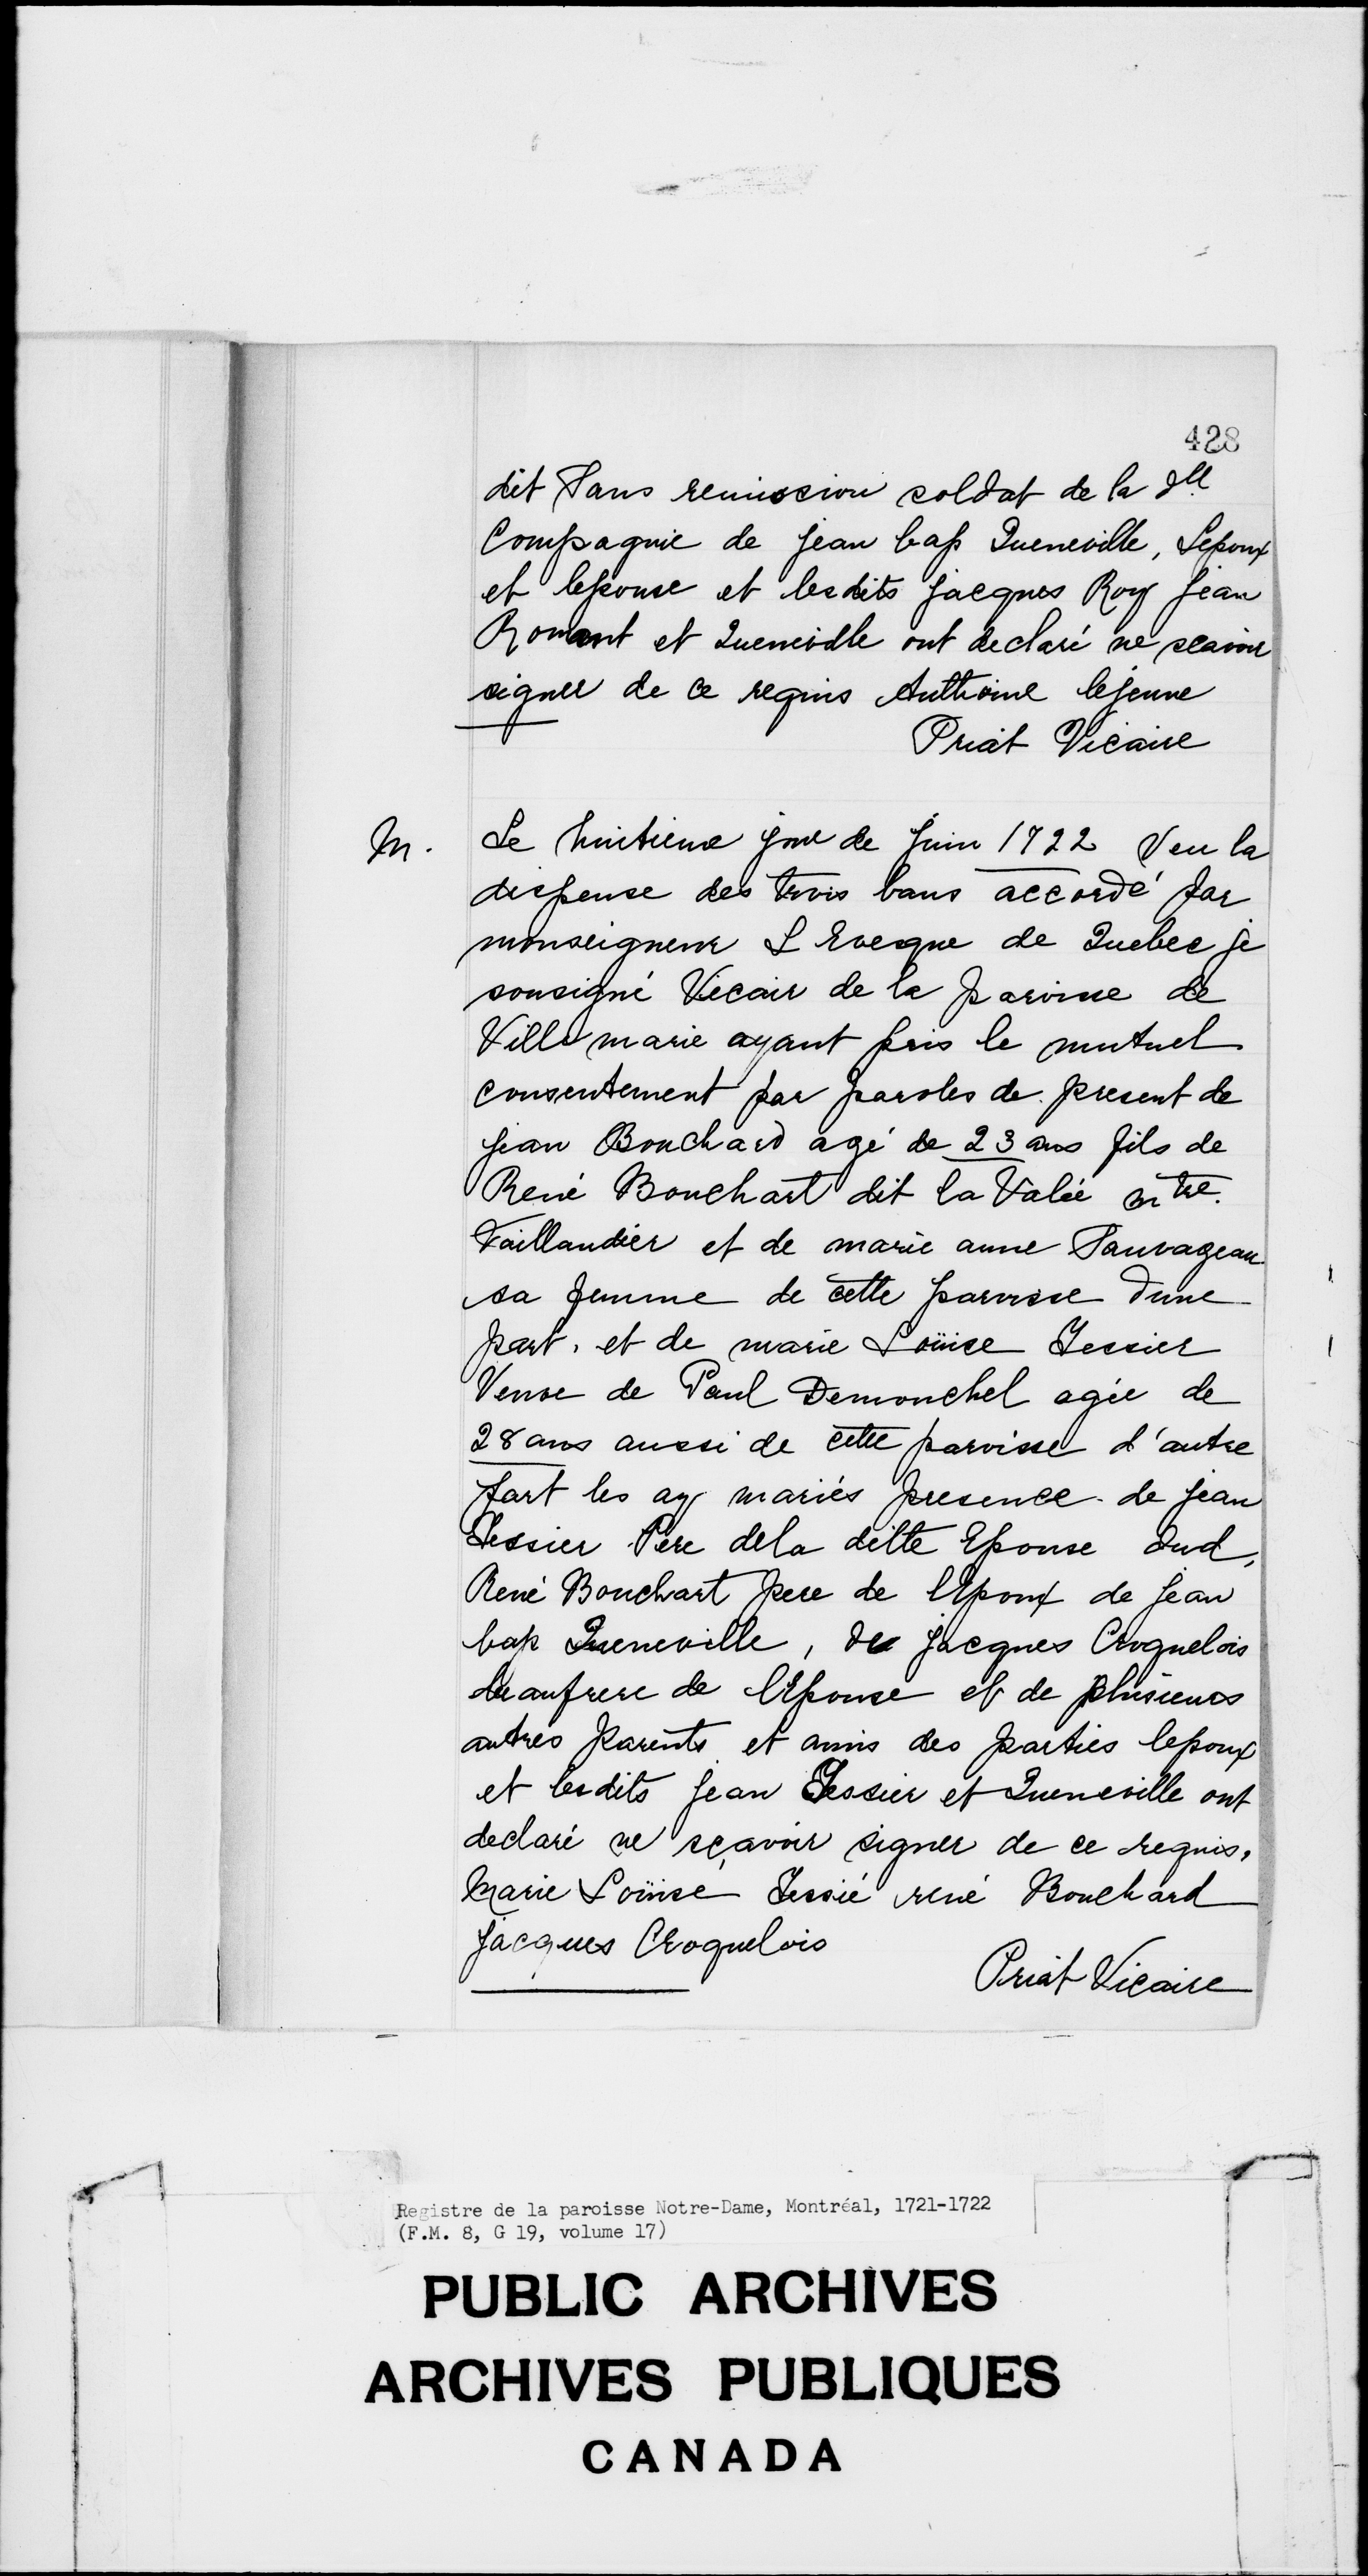 428
dit Sans remission soldat de la dll
Compagnie de jean bap Queneville, Lepoux
et lepouse et lesdits jacques Roy jean
Romant et Queneville ont declaré ne scavoir
signer de ce requis Anthoine lejeune
Priat Vicaire
M. Le huitieme jour de Juin 1722 Veu la
dispense des trois bans accordé par
monseigneur L Evesque de Quebec je
sousigné Vicair de la paroisse de
Ville marie ayant pris le mutuel
consentement par paroles de present de
jean Bouchard agé de 23 ans fils de
René Bouchart dit la Valée mtre.
Taillandier et de marie anne Sauvageau
sa femme de cette paroisse dune
part, et de marie Loüise Tessier
Veuve de Paul Demouchel agée de
28 ans aussi de cette paroisse d'autre
part les ay mariés presence de jean
Tessier Pere dela ditte Epouse dud,
René Bouchart pere de lEpoux de jean
bap Queneville, de jacques Croquelois
beaufrere de lEpouse et de plusieurs
autres parents et amis des parties lepoux
et lesdits jean Tessier et Queneville ont
declaré ne sçavoir signer de ce requis,
Marie Loüise Tessié rené Bouchard
jacques Croquelois
Priat Vicaire
Registre de la paroisse Notre-Dame, Montréal, 1721-1722
(F.M. 8, G 19, volume 17)
PUBLIC ARCHIVES
ARCHIVES PUBLIQUES
CANADA